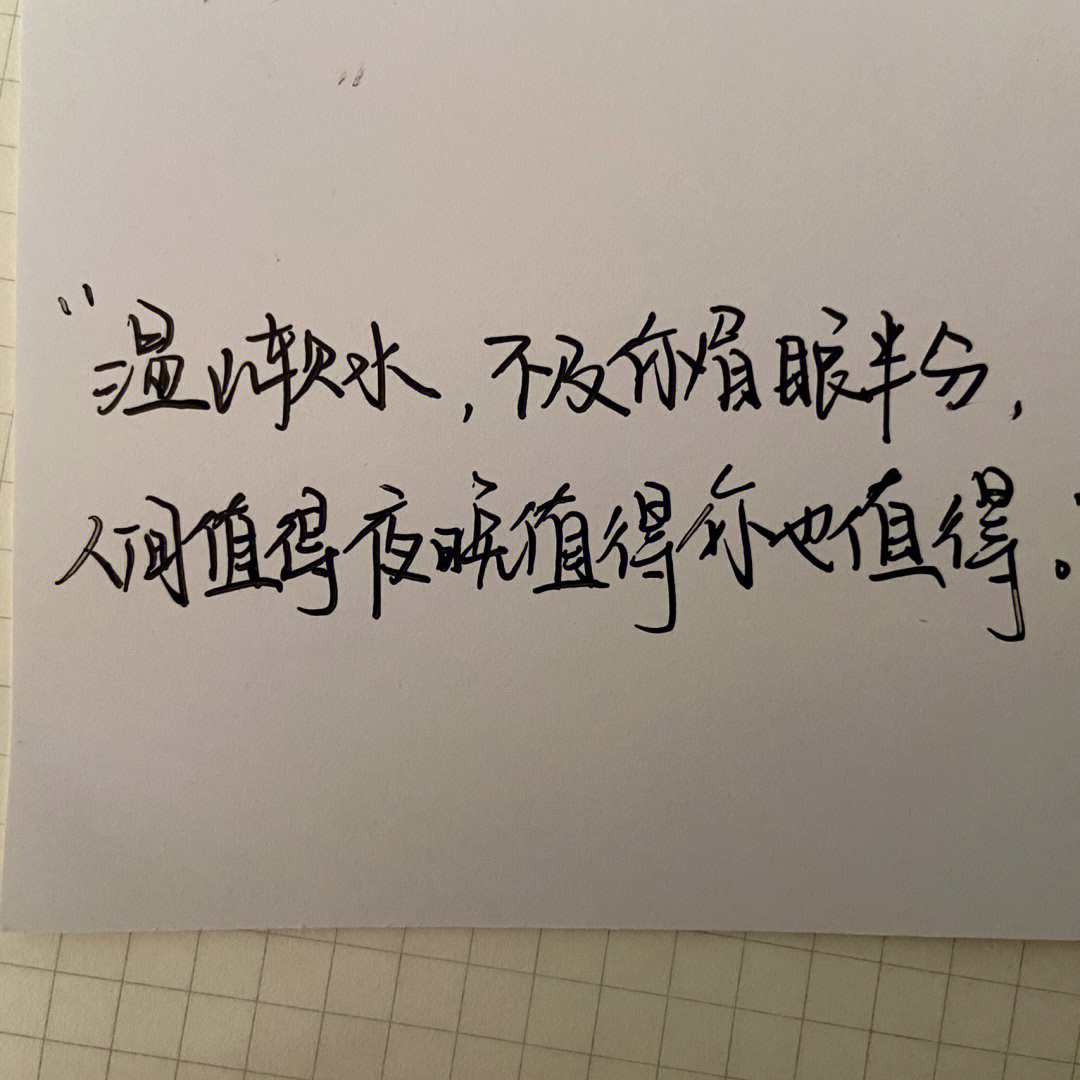 "温山软水,不及你眉眼半分,
人间值得夜晚值得你也值得。"